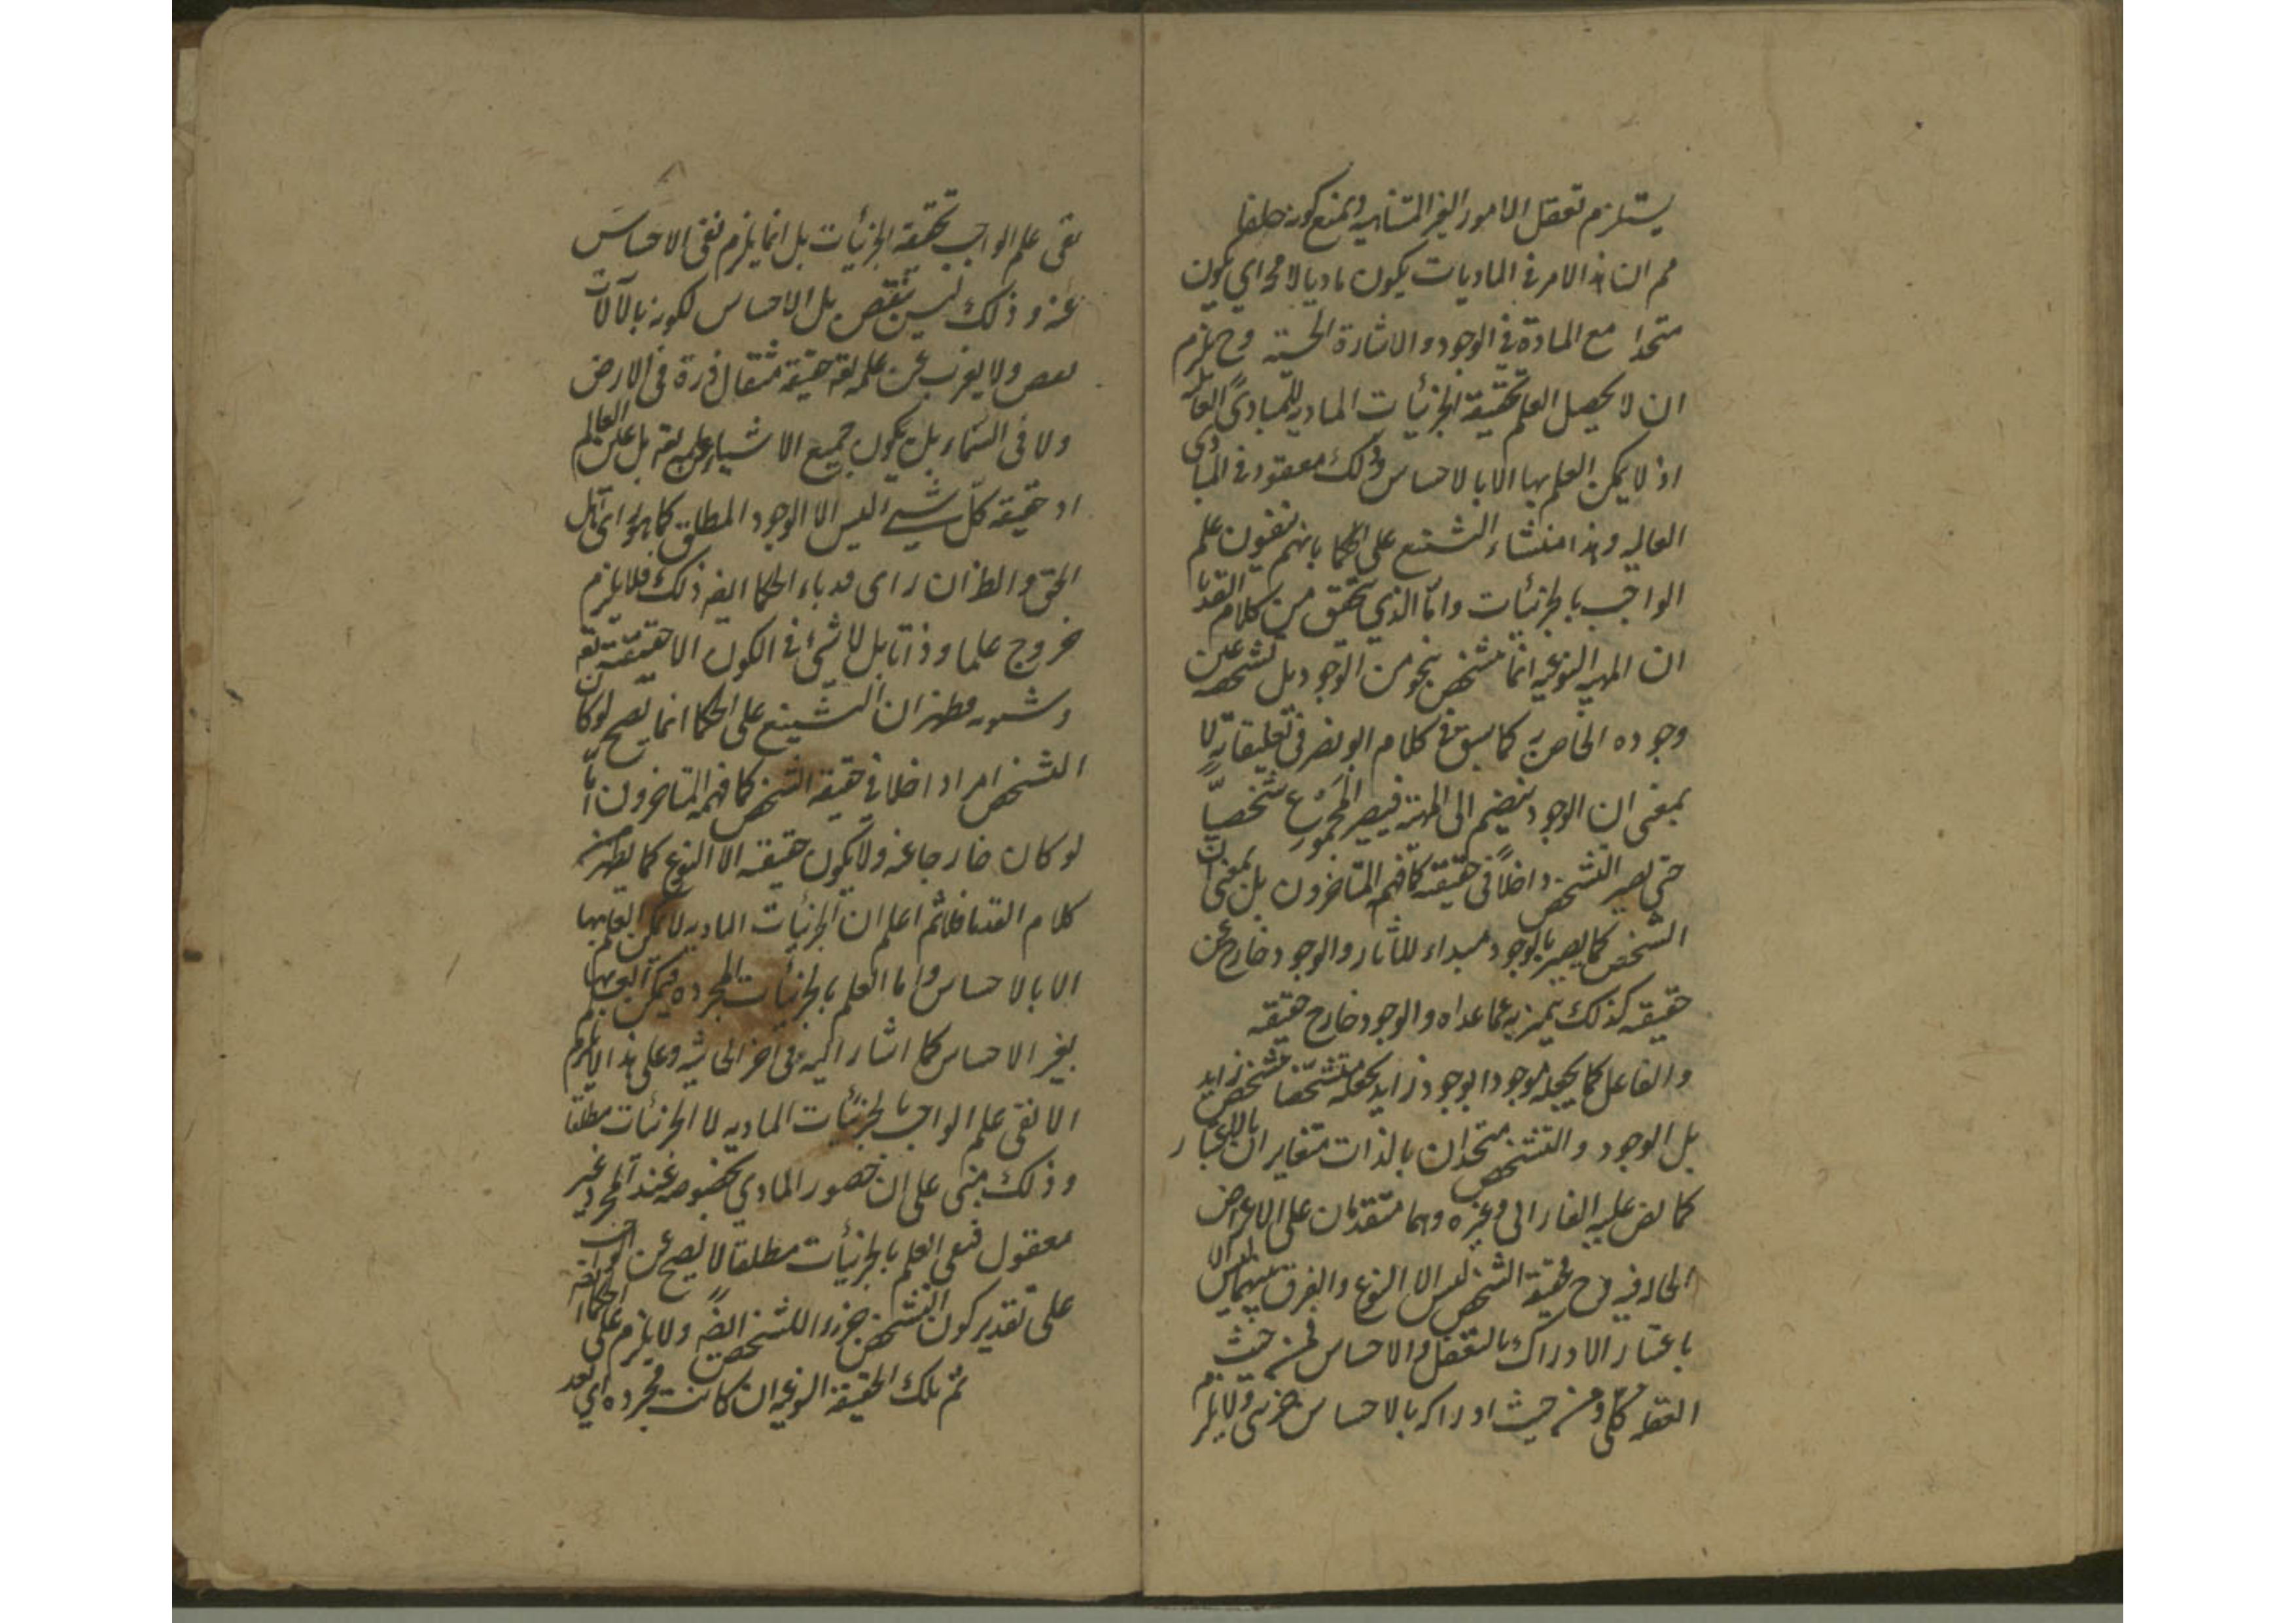 يستلزم تعقل الامور الغير المتناهيه ويمنع كونه خلفا
ثم ان هذا الامر في الماديات يكون ماديا لا محة اي يكون
متحدا مع المادة في الوجود والاشارة الحسية وح يلزم
ان لا يحصل العلم بحقيقة الجزئيات الماديه للمبادي العاليه
اذ لا يمكن العلم بها الا بالاحساس وذلك مفقود في المبادي
العاليه وهذا منشاء التشنيع على الحكما بانهم ينفون علم
الواجب بالجزئيات واما الذي يتحقق من كلام القدما
ان المهيه النوعيه انما تتشخص بنحو من الوجود بل تشخصه عين
وجوده الخاص به كما سبق في كلام ابو نصر في تعليقاته لا
بمعنى ان الوجود ينضم الى المهية فيصير المجموع شخصيا
حتى يصير التشخص داخلا في حقيقته كما فهم المتاخرون بل بمعنى ان
الشخص كما يصير بالوجود مبداء للآثار والوجود خارج عن
حقيقته كذلك يتميز به عما عداه والوجود خارج حقيقته
والفاعل كما يجعله موجودا بوجود زايد يجعله متشخصا بتشخص زايد
بل الوجود والتشخص متحدان بالذات متغايران بالاعتبار
كما نص عليه الفارابي وغيره وهما متقدمان على الاعراض
الحاله فيه فح حقيقة الشخص ليس الا النوع والفرق بينهما ليس الا
باعتبار الادراك بالتعقل والاحساس فمن حيث
التعقل كلي ومن حيث ادراكه بالاحساس جزئي ولا يلزم
نفى علم الواجب بحقيقة الجزئيات بل انما يلزم نفى الاحساس
عنه وذلك ليس بنقص بل الاحساس لكونه بالآلات
نقص ولا يعزب عن علمه تعه حقيقة مثقال ذرة في الارض
ولا في السماء بل يكون جميع الاشياء علمه تعه بل عين العالم
اذ حقيقة كل شيء ليس الا الوجود المطلق كما هو راى اهل
الحق والظ ان راى قدماء الحكما ايضه ذلك فلا يلزم
خروج علما وذاتا بل لا شيء في الكون الا حقيقته تعه
وشئونه فظهر ان التشنيع على الحكما انما يصح لو كان
التشخص امرا داخلا في حقيقة الشخص كما فهمه المتاخرون اما
لو كان خارجا عنه ولا يكون حقيقته الا النوع كما يظهر من
كلام القدما فلا ثم اعلم ان الجزئيات الماديه لا يمكن العلم بها
الا بالاحساس واما العلم بالجزئيات المجرده فيمكن العلم بها
بغير الاحساس كما اشار اليه في اخر الحاشيه وعلى هذا لا يلزم
الا نفى علم الواجب بالجزئيات الماديه لا الجزئيات مطلقا
وذلك مبنى على ان حضور المادي بخصوصه عند المجرد غير
معقول فنفى العلم بالجزئيات مطلقا لا يصح عن الواجب تعه
على تقدير كون التشخص جزءا للشخص ايضه ولا يلزم على الحكما
ثم تلك الحقيقة النوعيه ان كانت مجرده اي بعد